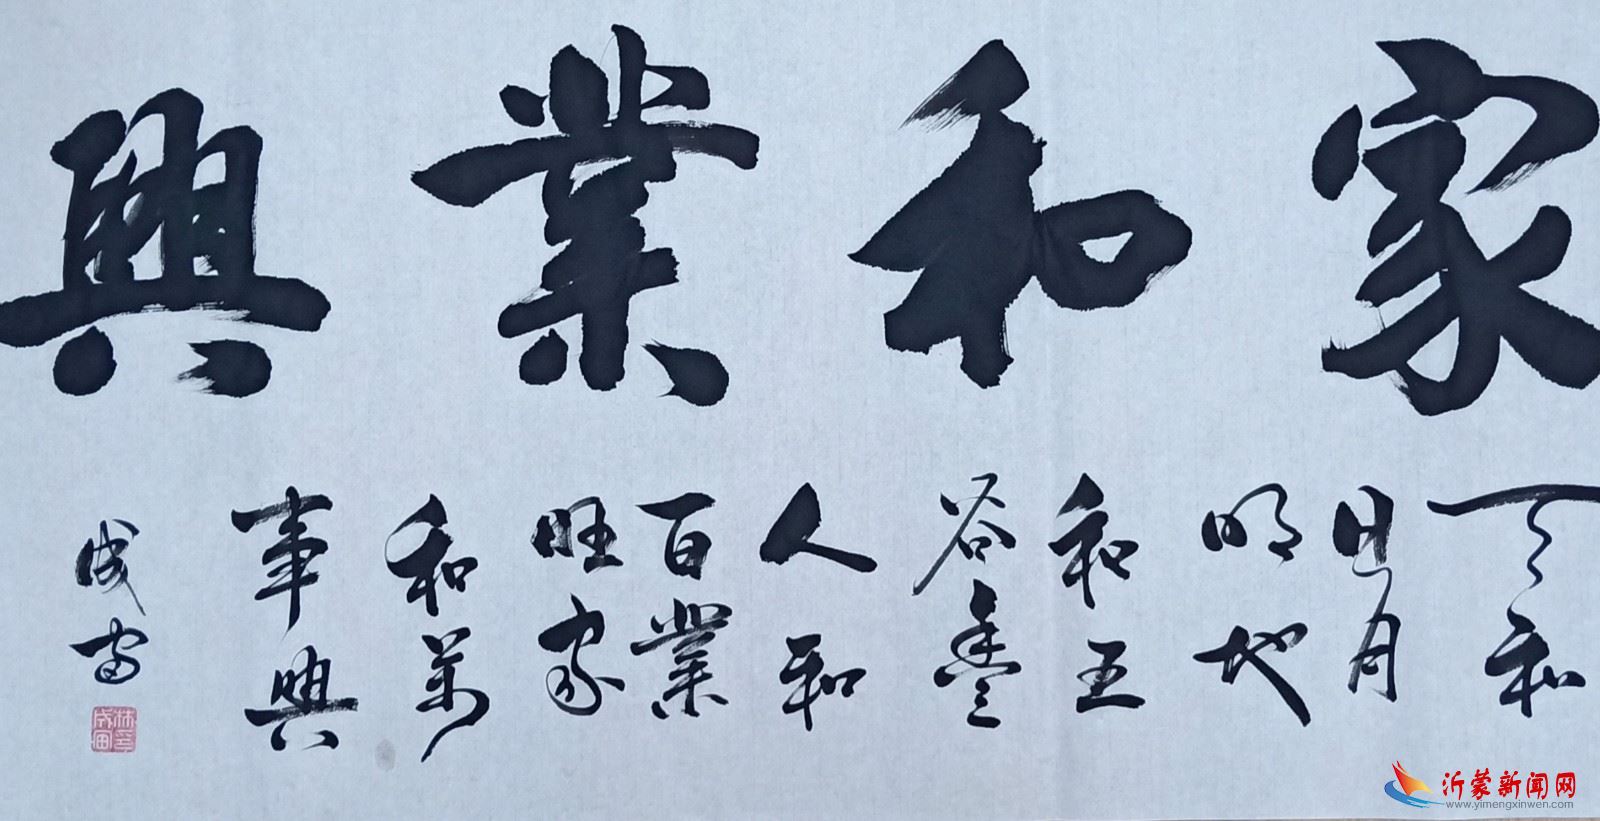 家和業興
天和
日月
明地
和五
谷豐
人和
百業
旺家
和萬
事興
成
沂蒙新闻网
www.yimengxinwen.com